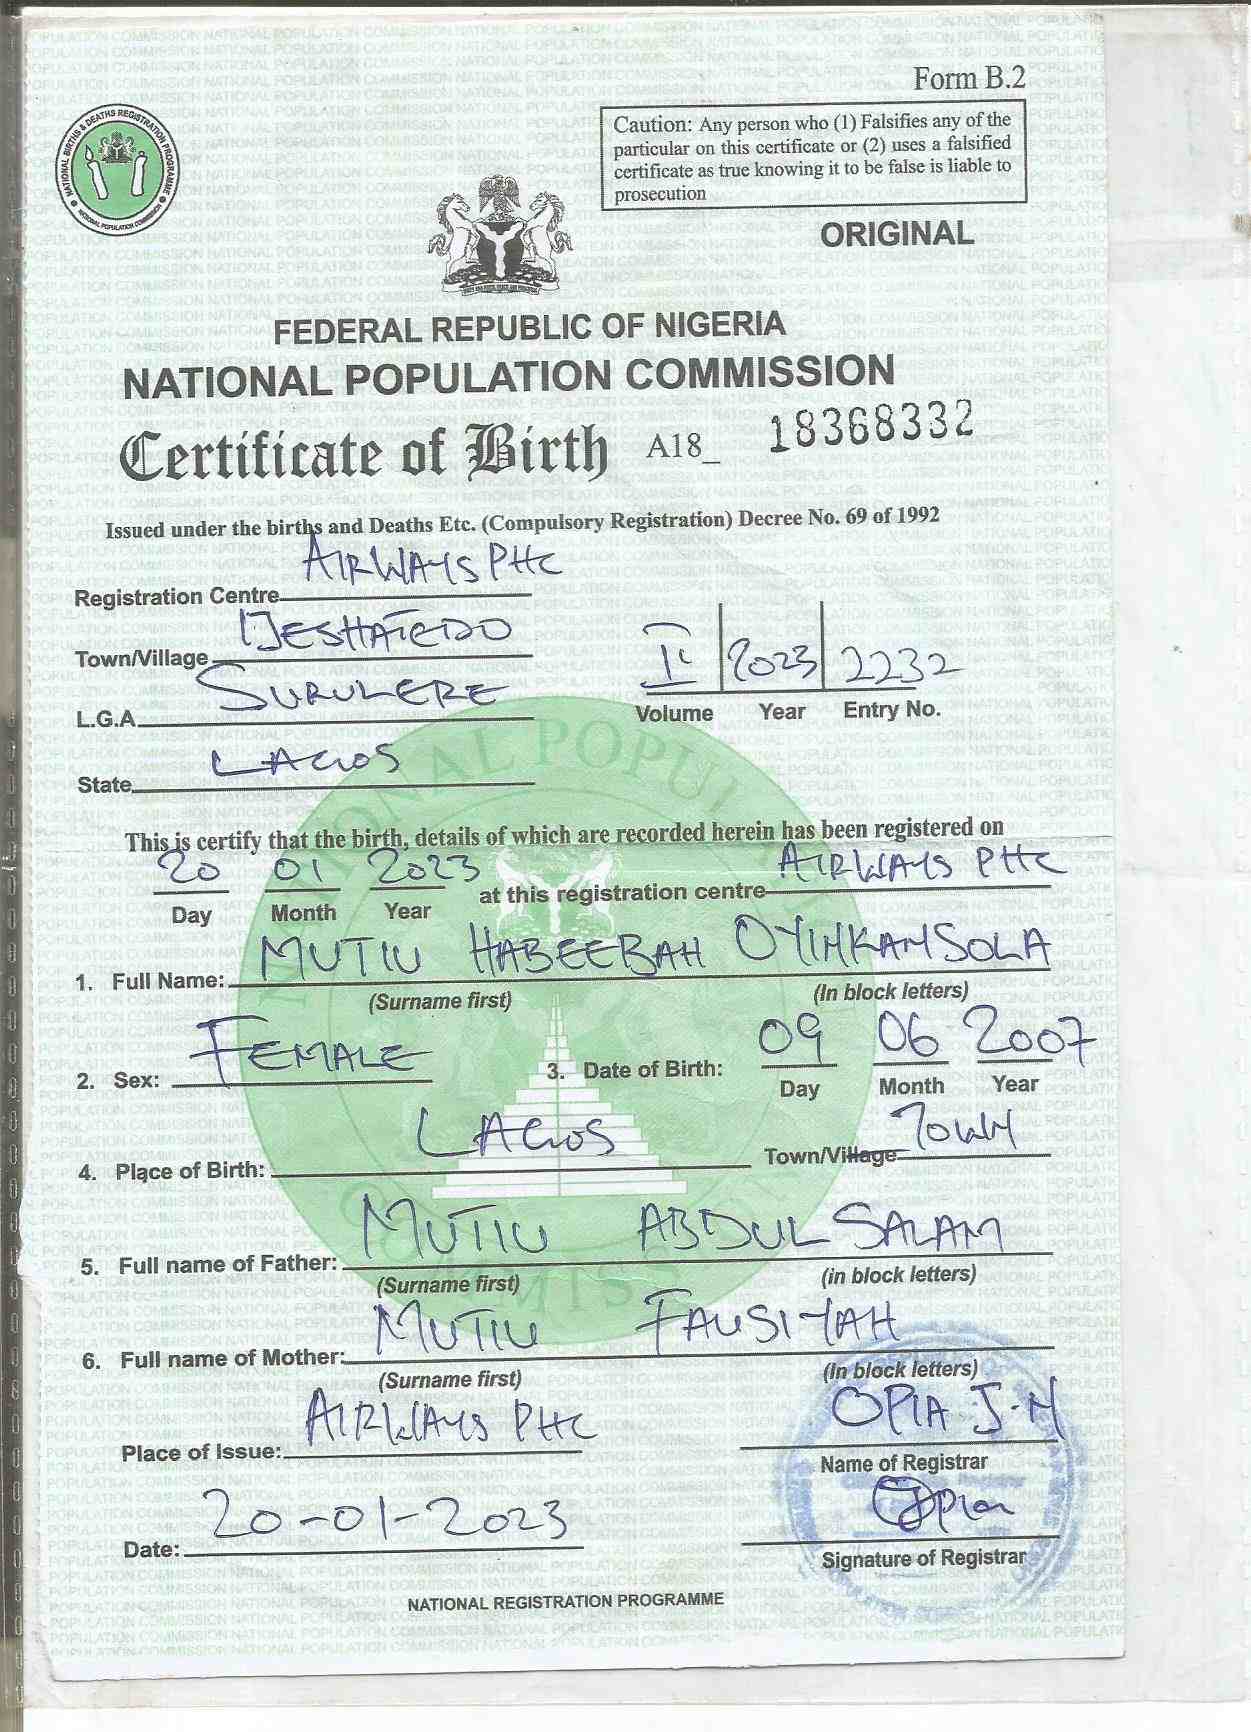 Form B.2
Caution: Any person who (1) Falsifies any of the
particular on this certificate or (2) uses a falsified
certificate as true knowing it to be false is liable to
prosecution
NATIONAL BIRTHS & DEATHS REGISTRATION PROGRAMME
NATIONAL POPULATION COMMISSION
ORIGINAL
FEDERAL REPUBLIC OF NIGERIA
NATIONAL POPULATION COMMISSION
Certificate of Birth A18_ 18368332
Issued under the births and Deaths Etc. (Compulsory Registration) Decree No. 69 of 1992
Registration Centre AIRWAYS PHC
Town/Village IJESHATEDO
L.G.A SURULERE
II 2023 2232
Volume Year Entry No.
State LAGOS
This is certify that the birth, details of which are recorded herein has been registered on
20 01 2023 at this registration centre AIRWAYS PHC
Day Month Year
1. Full Name: MUTIU HABEEBAH OYINKANSOLA
(Surname first) (In block letters)
2. Sex: FEMALE 3. Date of Birth: 09 06 2007
Day Month Year
4. Place of Birth: LAGOS Town/Village TOWN
5. Full name of Father: MUTIU ABDUL SALAM
(Surname first) (in block letters)
6. Full name of Mother: MUTIU FAUSIYAH
(Surname first) (In block letters)
Place of Issue: AIRWAYS PHC OPIA J.N
Name of Registrar
Date: 20-01-2023
Signature of Registrar
NATIONAL REGISTRATION PROGRAMME